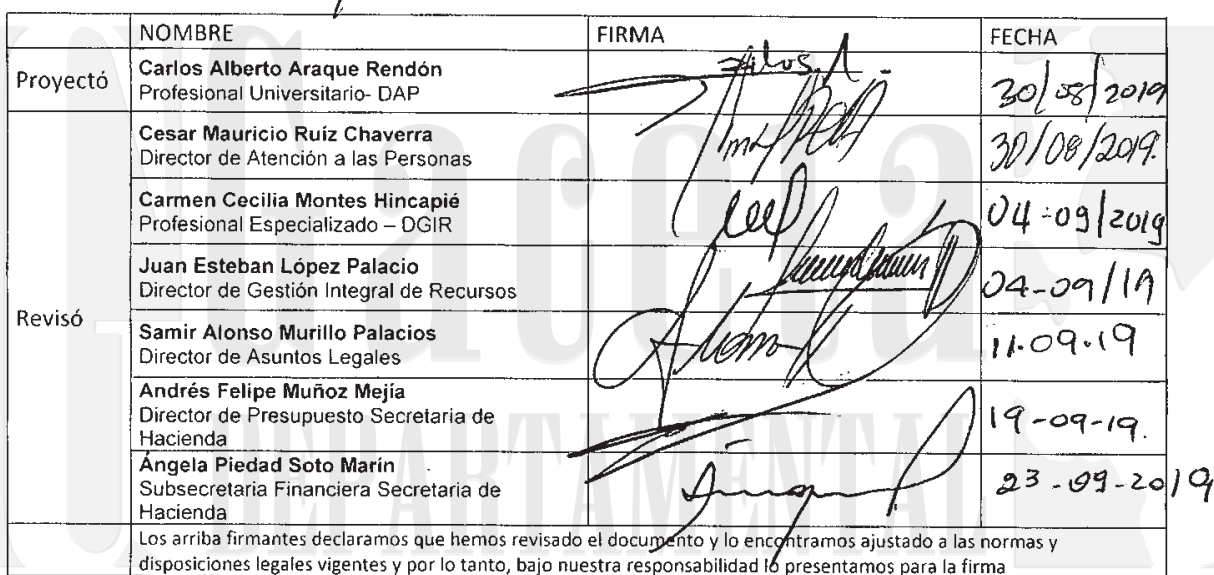 NOMBRE FIRMA FECHA
Proyectó
Carlos Alberto Araque Rendón
Profesional Universitario- DAP
30/08/2019
Revisó
Cesar Mauricio Ruíz Chaverra
Director de Atención a las Personas
30/08/2019.
Carmen Cecilia Montes Hincapié
Profesional Especializado – DGIR
04-09/2019
Juan Esteban López Palacio
Director de Gestión Integral de Recursos
04-09/19
Samir Alonso Murillo Palacios
Director de Asuntos Legales
11.09.19
Andrés Felipe Muñoz Mejía
Director de Presupuesto Secretaria de
Hacienda
19-09-19.
Ángela Piedad Soto Marín
Subsecretaria Financiera Secretaria de
Hacienda
23-09-2019
Los arriba firmantes declaramos que hemos revisado el documento y lo encontramos ajustado a las normas y
disposiciones legales vigentes y por lo tanto, bajo nuestra responsabilidad lo presentamos para la firma
Gaceta
DEPARTAMENTAL